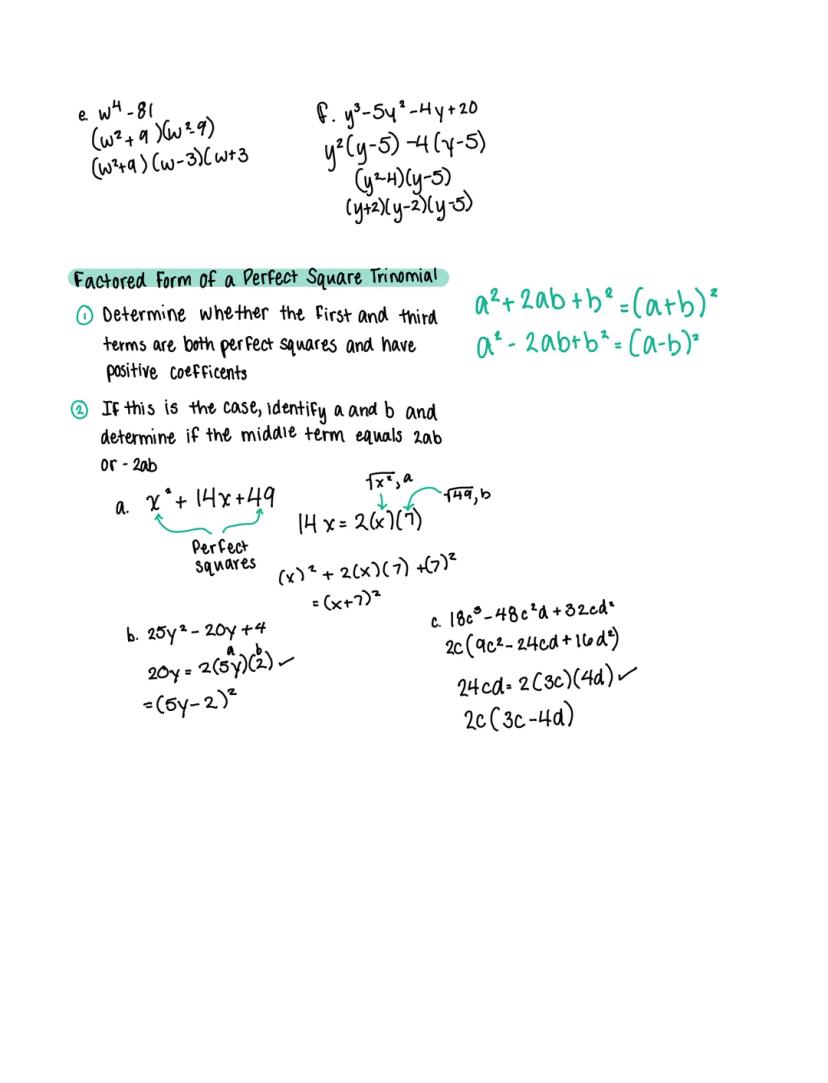 e. w⁴ - 81
(w² + 9)(w² - 9)
(w² + 9)(w - 3)(w + 3
f. y³ - 5y² - 4y + 20
y²(y - 5) - 4(y - 5)
(y² - 4)(y - 5)
(y + 2)(y - 2)(y - 5)
Factored Form of a Perfect Square Trinomial
① Determine whether the first and third
terms are both perfect squares and have
positive coefficents
a² + 2ab + b² = (a + b)²
a² - 2ab + b² = (a - b)²
② If this is the case, identify a and b and
determine if the middle term equals 2ab
or - 2ab
a. x² + 14x + 49
Perfect
squares
√x², a
√49, b
14x = 2(x)(7)
(x)² + 2(x)(7) + (7)²
= (x + 7)²
b. 25y² - 20y + 4
a b
20y = 2(5y)(2) ✓
= (5y - 2)²
c. 18c³ - 48c²d + 32cd²
2c(9c² - 24cd + 16d²)
24cd = 2(3c)(4d) ✓
2c(3c - 4d)